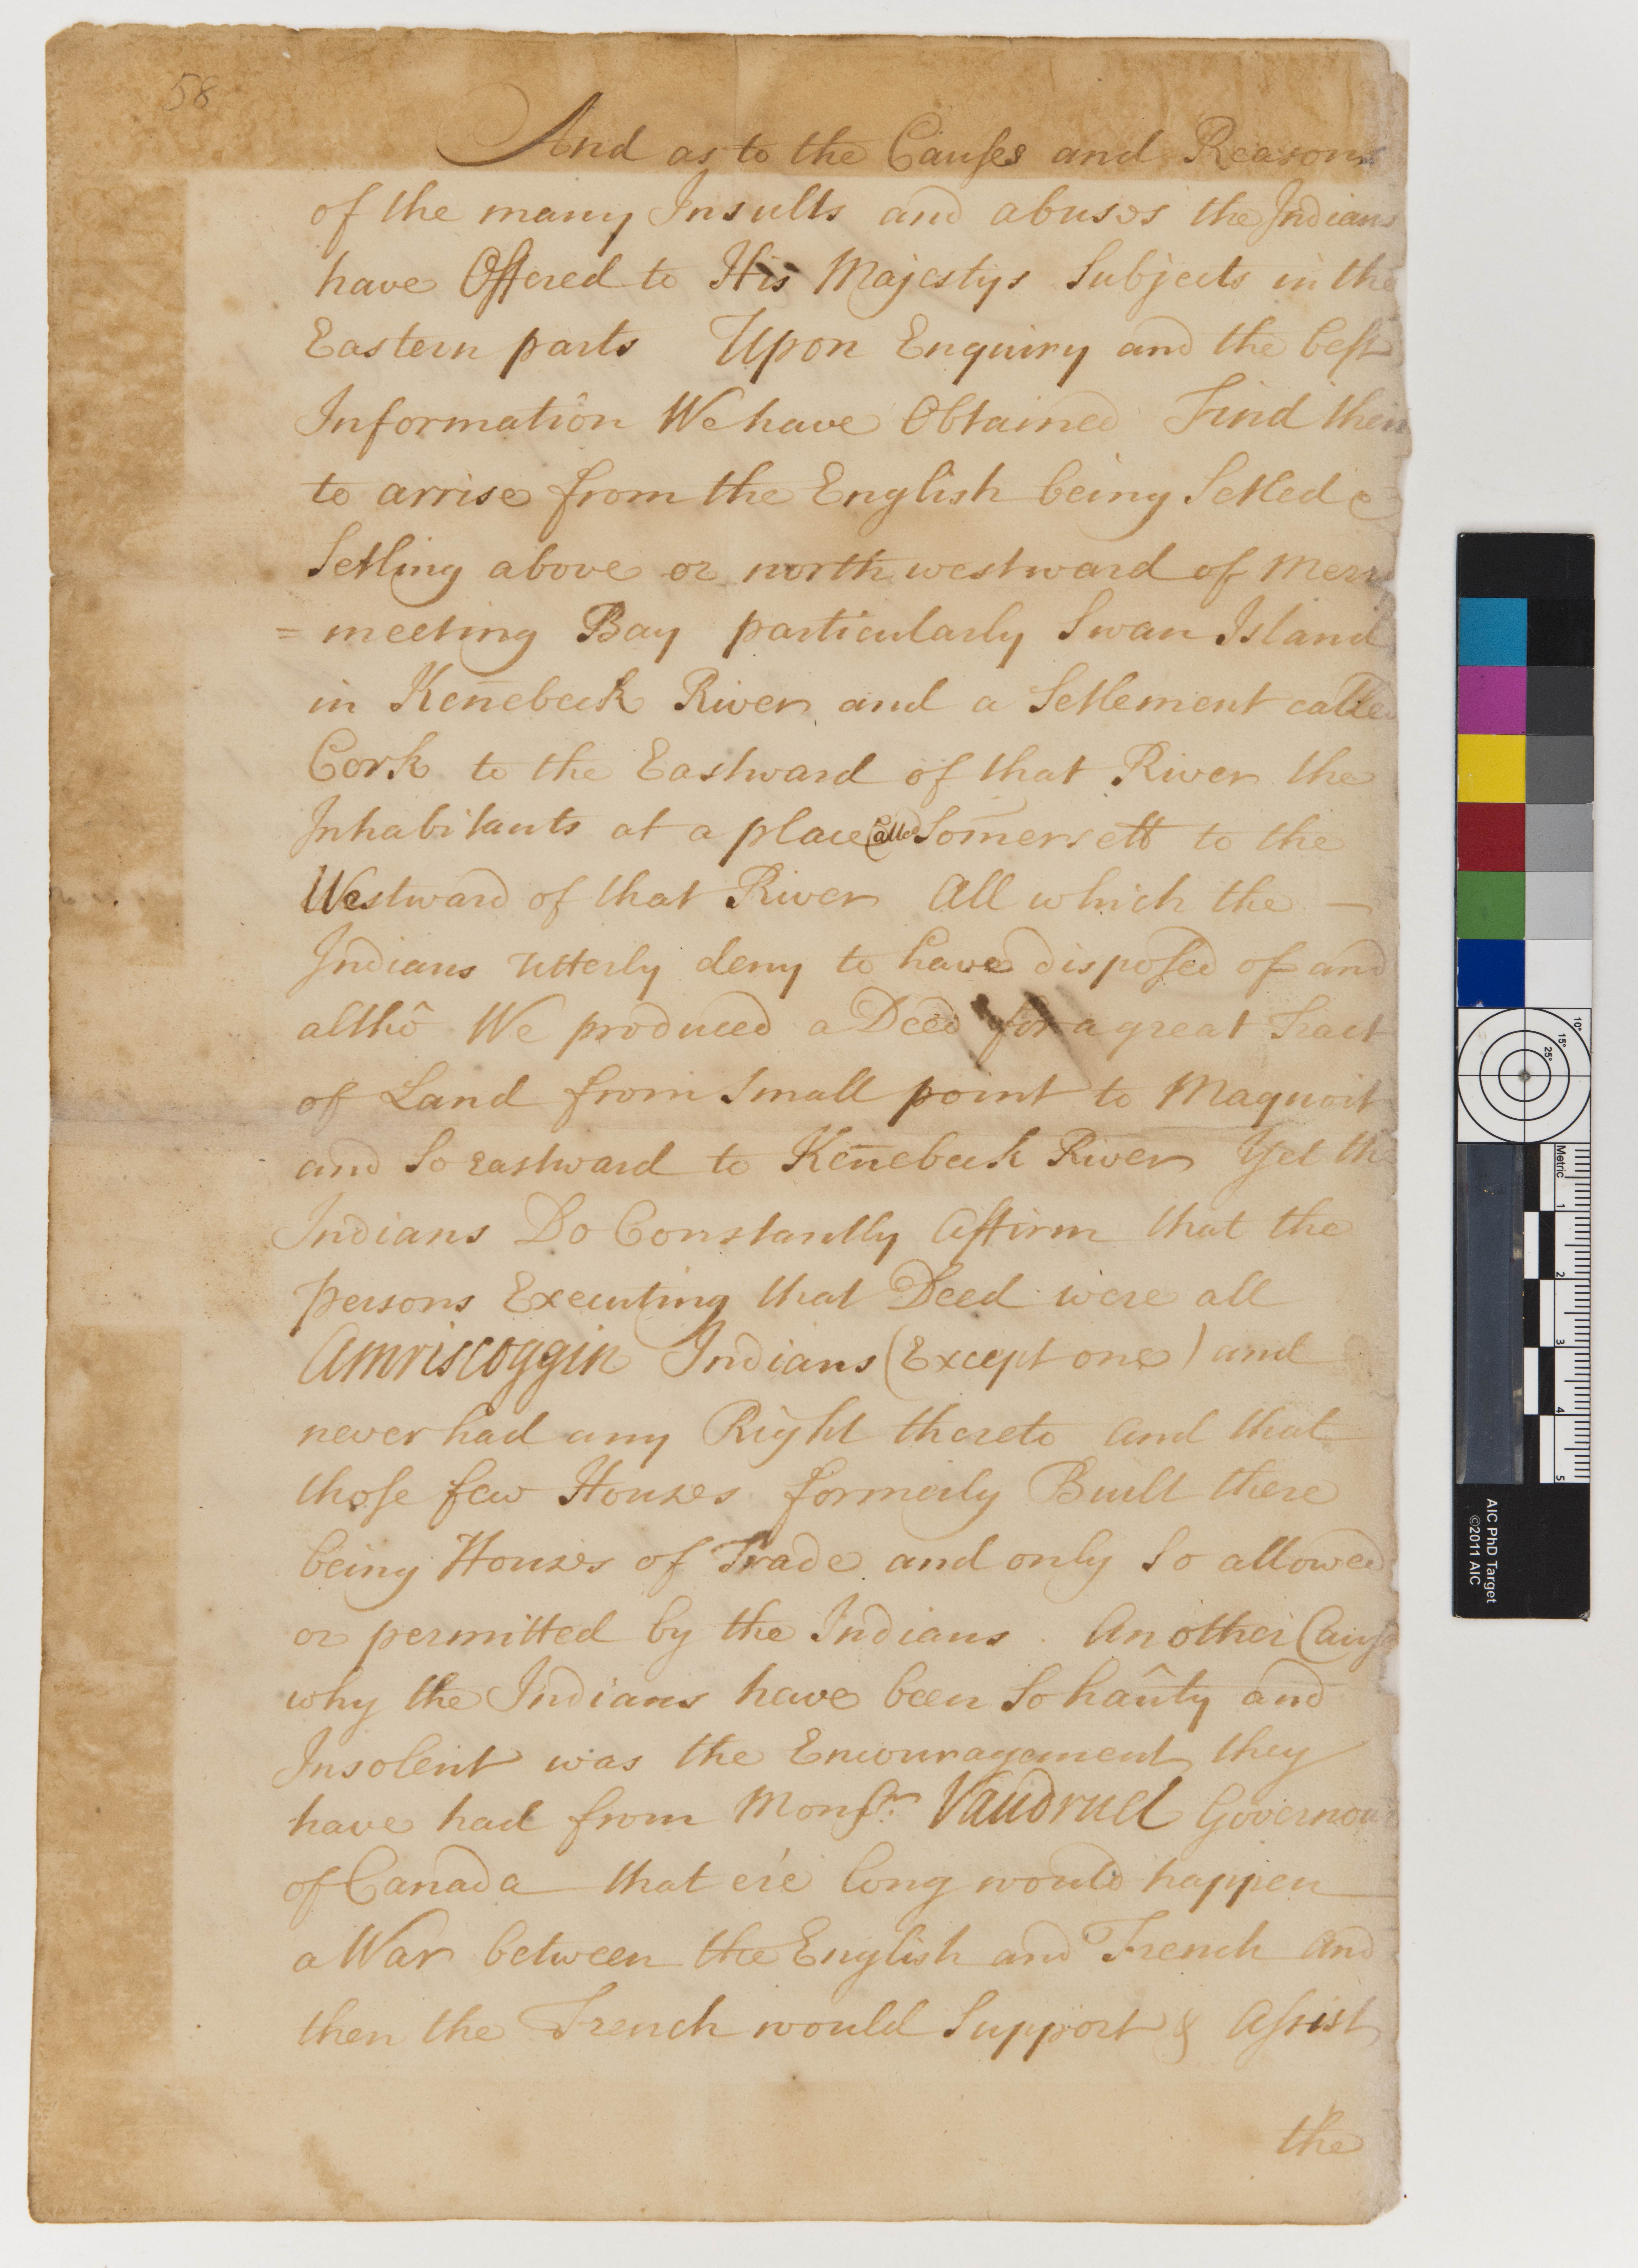 58
And as to the Causes and Reasons
of the many Insults and abuses the Indians
have Offered to His Majestys Subjects in the
Eastern parts Upon Enquiry and the best
Information We have Obtained Find them
to arrise from the English being Setled &
Setling above or north westward of Merry
= meeting Bay particularly Swan Island
in Keñebeck River and a Setlement called
Cork to the Eastward of that River the
Inhabitants at a place Called Somersett to the
Westward of that River All which the —
Indians Utterly deny to have disposed of and
althô We produced a Deed for a great Tract
of Land from Small point to Maquoit
and So Eastward to Keñebeck River Yet the
Indians Do Constantly Affirm that the
persons Executing that Deed were all
Amriscoggin Indians (Except one) and
never had any Right thereto and that
those few Houses formerly Built there
being Houses of Trade and only So allowed
or permitted by the Indians. Another Cause
why the Indians have been So haûty and
Insolent was the Encouragement they
have had from Monsr. Vaudruel Governour
of Canada that e're long would happen
a War between the English and French and
then the French would Support & Assist
the
10°
15°
25°
Metric
1
2
3
4
5
AIC PhD Target
©2011 AIC